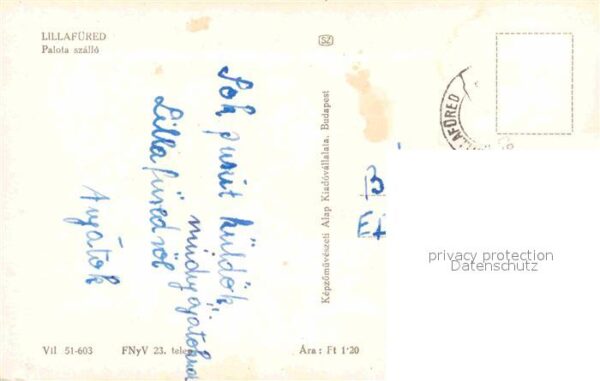 LILLAFÜRED
Palota szálló
SZ
Sok puszit küldök
mindnyájatoknak
Lillafüredről
Anyátok
Képzőművészeti Alap Kiadóvállalata, Budapest
LILLAFÜRED
B
privacy protection
Datenschutz
VII 51-603 FNyV 23. telep Ára: Ft 1'20